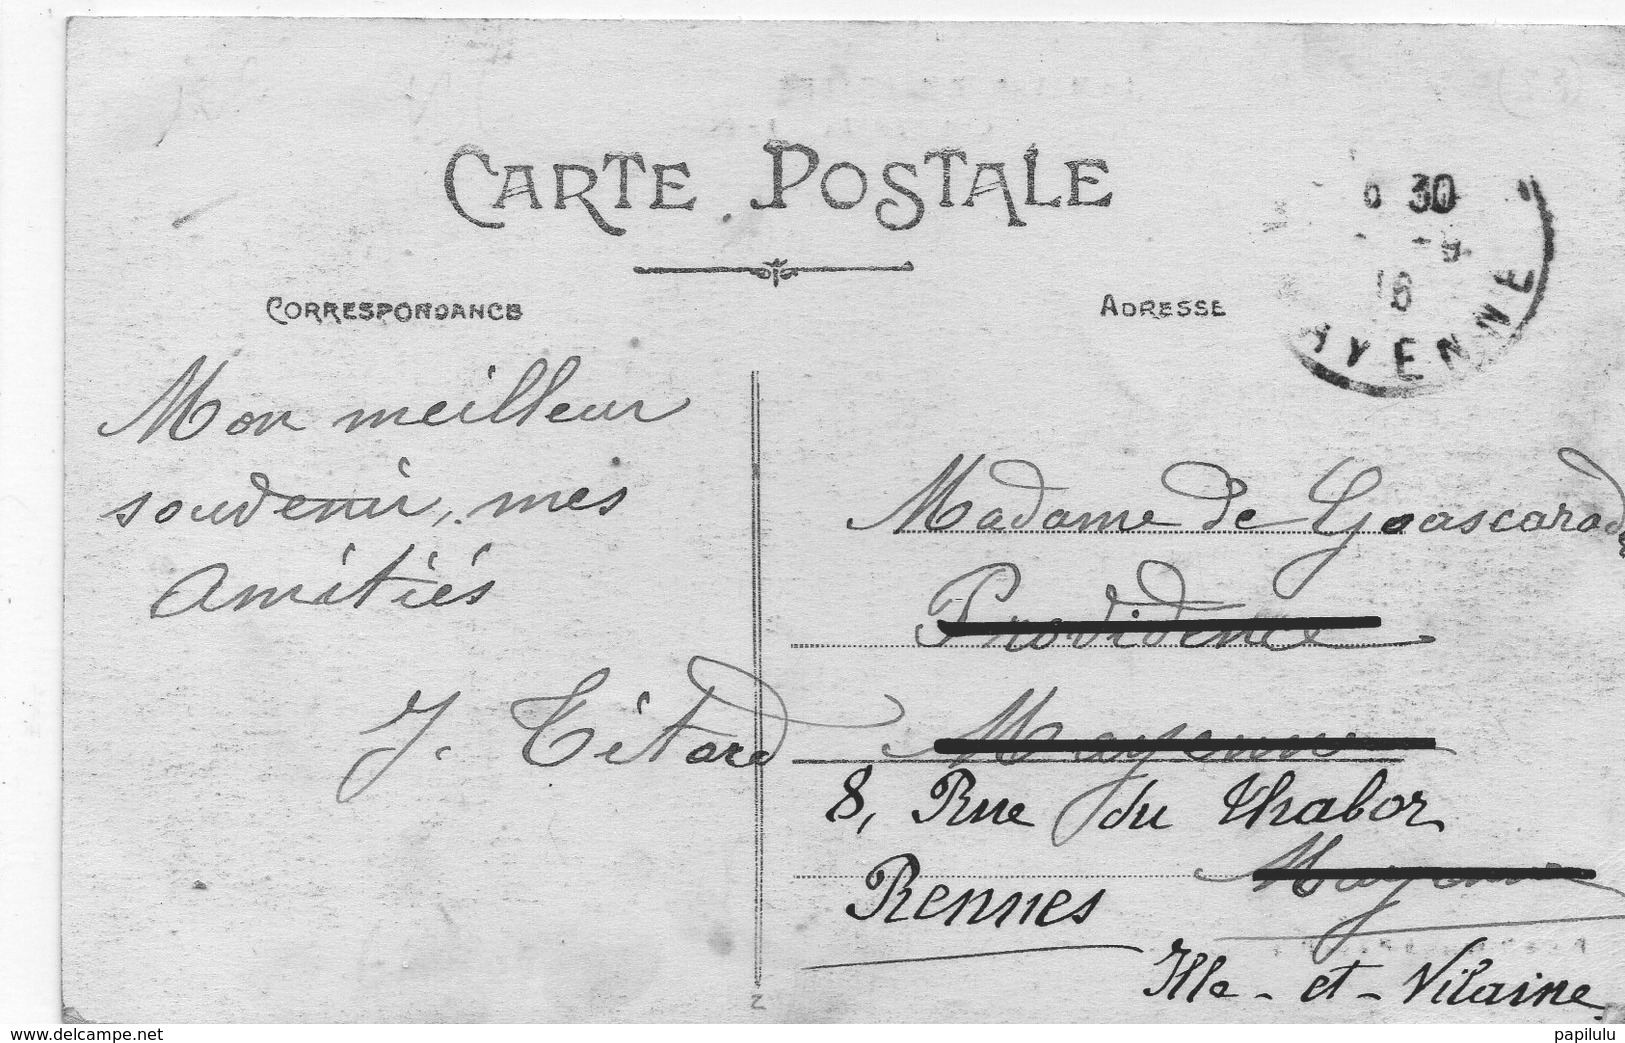 CARTE POSTALE
CORRESPONDANCE
ADRESSE
30
-9
16
AYENNE
Mon meilleur
souvenir, mes
amitiés
J. Tétard
Madame de Goascarad
Providence
Mayenne
8, Rue du Thabor
Mayenne
Rennes
Ille-et-Vilaine
2
www.delcampe.net
papilulu